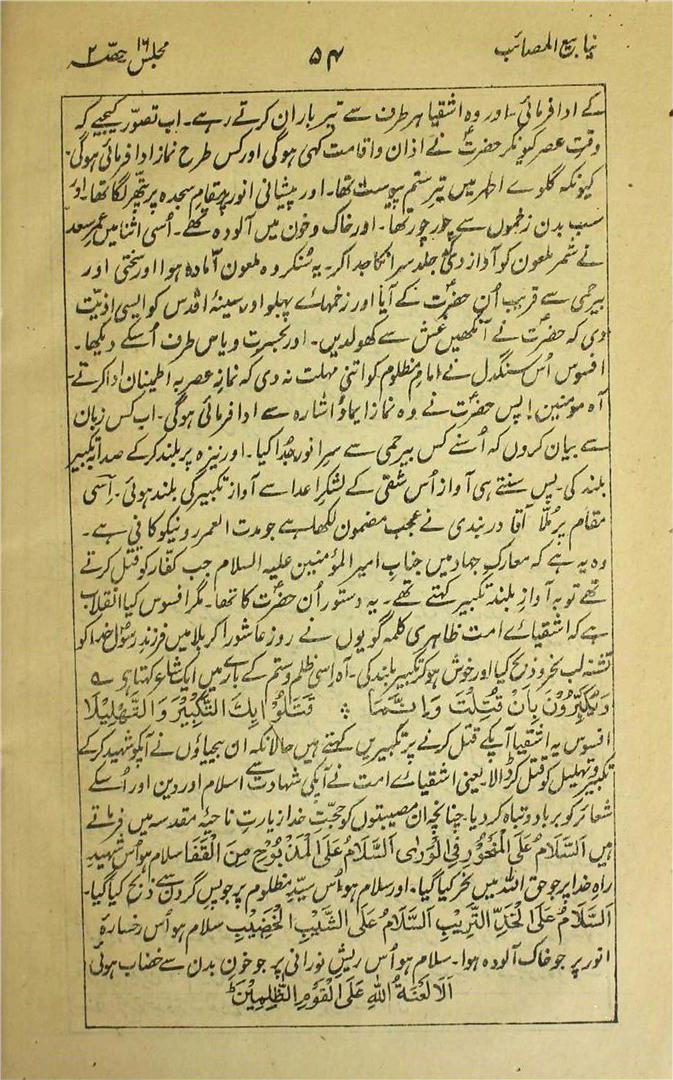 نیابیع المصائب ۵۴ مجلس ۱۶ حصّہ ۲
کے ادا فرمائی۔ اور وہ اشقیا ہر طرف سے تیر باران کرتے رہے۔ اب تصوّر کیجیے کہ
وقتِ عصر کیونکر حضرتؑ نے اذان واقامت کہی ہوگی اور کس طرح نماز ادا فرمائی ہوگی۔
کیونکہ گلوے اطہر میں تیر ستم پیوست تھا۔ اور پیشانی انور پر مقام سجدہ پر پتھّر لگا تھا۔ اور
سب بدن زخموں سے چور چور تھا۔ اور خاک و خون میں آلودہ تھے۔ اُسی اثنا میں عمر سعد
نے شمر ملعون کو آواز دی کہ جلد سر انکا جدا کر۔ یہ سُنکر وہ ملعون آمادہ ہوا اور سختی اور
بیرحمی سے قریب اُن حضرتؑ کے آیا اور زخمہاے پہلو اور سینۂ اقدس کو ایسی اذیّت
دی کہ حضرتؑ نے آنکھیں غش سے کھولدیں۔ اور بحسرت ویاس طرف اُسکے دیکھا۔
افسوس اُس سنگدل نے امام مظلوم کو اتنی مہلت نہ دی کہ نماز عصر بہ اطینان ادا کرتے۔
آہ مومنین! پس حضرتؑ نے وہ نماز ایما و اشارہ سے ادا فرمائی ہوگی۔ اب کس زبان
سے بیان کروں کہ اُسنے کس بیرحمی سے سرِ انور جُدا کیا۔ اور نیزہ پر بلند کرکے صداے تکبیر
بلند کی۔ پس سنتے ہی آواز اُس شقی کے لشکرِ اعدا سے آواز تکبیر کی بلند ہوئی۔ اِسی
مقام پر مُلّا آقا دربندی نے عجب مضمون لکھا ہے جو مدت العمر رونیکو کافی ہے۔
وہ یہ ہے کہ معارکِ جہاد میں جناب امیر المؤمنین علیہ السلام جب کفّار کو قتل کرتے
تھے تو بہ آوازِ بلند تکبیر کہتے تھے۔ یہ دستور اُن حضرتؑ کا تھا۔ مگر افسوس کیا انقلاب
ہے کہ اشقیاے امت ظاہری کلمہ گویوں نے روز عاشورا کربلا میں فرزند رسول خدا کو
تشنہ لب نحر و ذبح کیا اور خوش ہوکر تکبیر بلند کی۔ آہ اِسی ظلم و ستم کے بارے میں ایک شاعر کہتا ہی ؎
وَیُکَبِّرُوْنَ بِاَنْ قُتِلْتَ وَاِنَّمَا ؞ قَتَلُوْا بِكَ التَّکْبِیْرَ وَالتَّهْلِیْلَا
افسوس یہ اشقیا آپکے قتل کرنے پر تکبیریں کہتے ہیں حالانکہ ان بیحیاؤں نے آپکو شہید کرکے
تکبیر و تہلیل کو قتل کر ڈالا۔ یعنی اشقیاے امت نے آپکی شہادت سے اسلام اور دین اور اُسکے
شعائر کو برباد و تباہ کردیا۔ چنانچہ ان مصیبتوں کو حجّتِ خدا زیارتِ ناحیۂ مقدسہ میں فرماتے
ہیں اَلسَّلَامُ عَلَی الْمَنْحُوْرِ فِی الْوَرٰی اَلسَّلَامُ عَلَی الْمَذْبُوْحِ مِنَ الْقَفَا سلام ہو اُس شہیدِ
راہِ خدا پر جو حق اللہ میں نحر کیا گیا۔ اور سلام ہو اُس سیّدِ مظلوم پر جو پسِ گردن سے ذبح کیا گیا۔
اَلسَّلَامُ عَلَی الْخَدِّ التَّرِیْبِ اَلسَّلَامُ عَلَی الشَّیْبِ الْخَضِیْبِ سلام ہو اُس رخسارۂ
انور پر جو خاک آلودہ ہوا۔ سلام ہو اُس ریشِ نورانی پر جو خونِ بدن سے خضاب ہوئی
اَلَا لَعْنَةُ اللّٰهِ عَلَی الْقَوْمِ الظّٰلِمِیْنَ